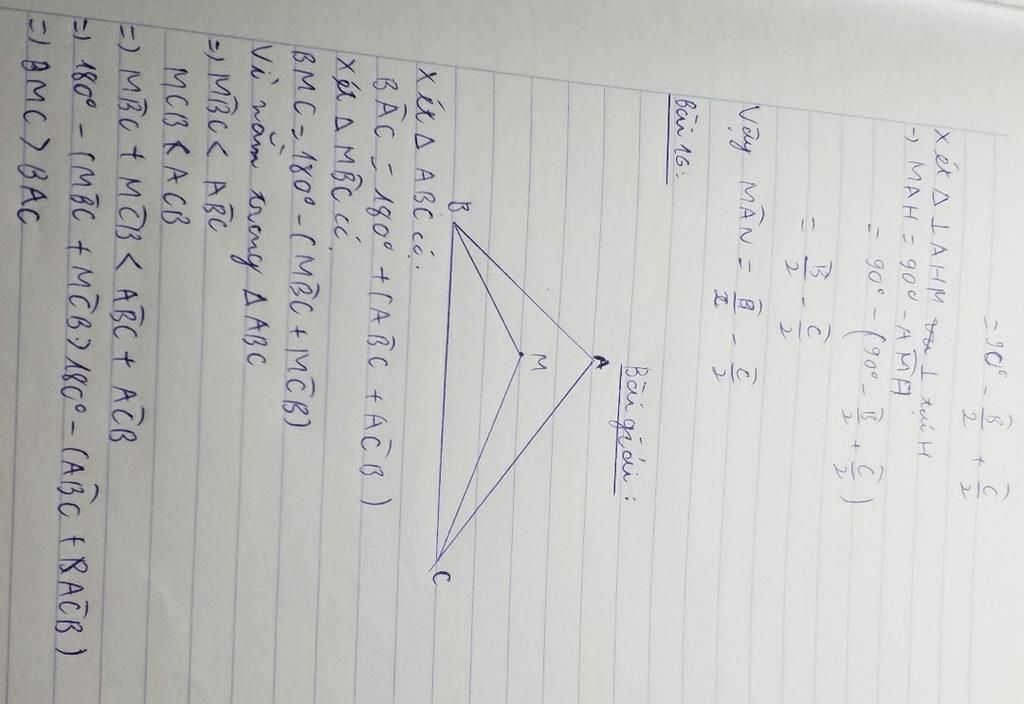 = 90° - B̂/2 + Ĉ/2
Xét Δ ⊥ AHM ⊥ tại H
=) MAH = 90° - AM̂H
= 90° - (90° - B̂/2 + Ĉ/2)
= B̂/2 - Ĉ/2
Vậy MÂN = B̂/2 - Ĉ/2
Bài 16:
Bài giải:
A
M
B
C
Xét Δ ABC có.
BÂC = 180° + (AB̂C + AĈB)
Xét Δ MBC có
BMC = 180° - (MB̂C + MĈB)
Vì nằm trong Δ ABC
=) MB̂C < AB̂C
MCB < ACB
=) MB̂C + MĈB < AB̂C + AĈB
=) 180° - (MB̂C + MĈB) 180° - (AB̂C + AĈB)
=) BMC > BAC